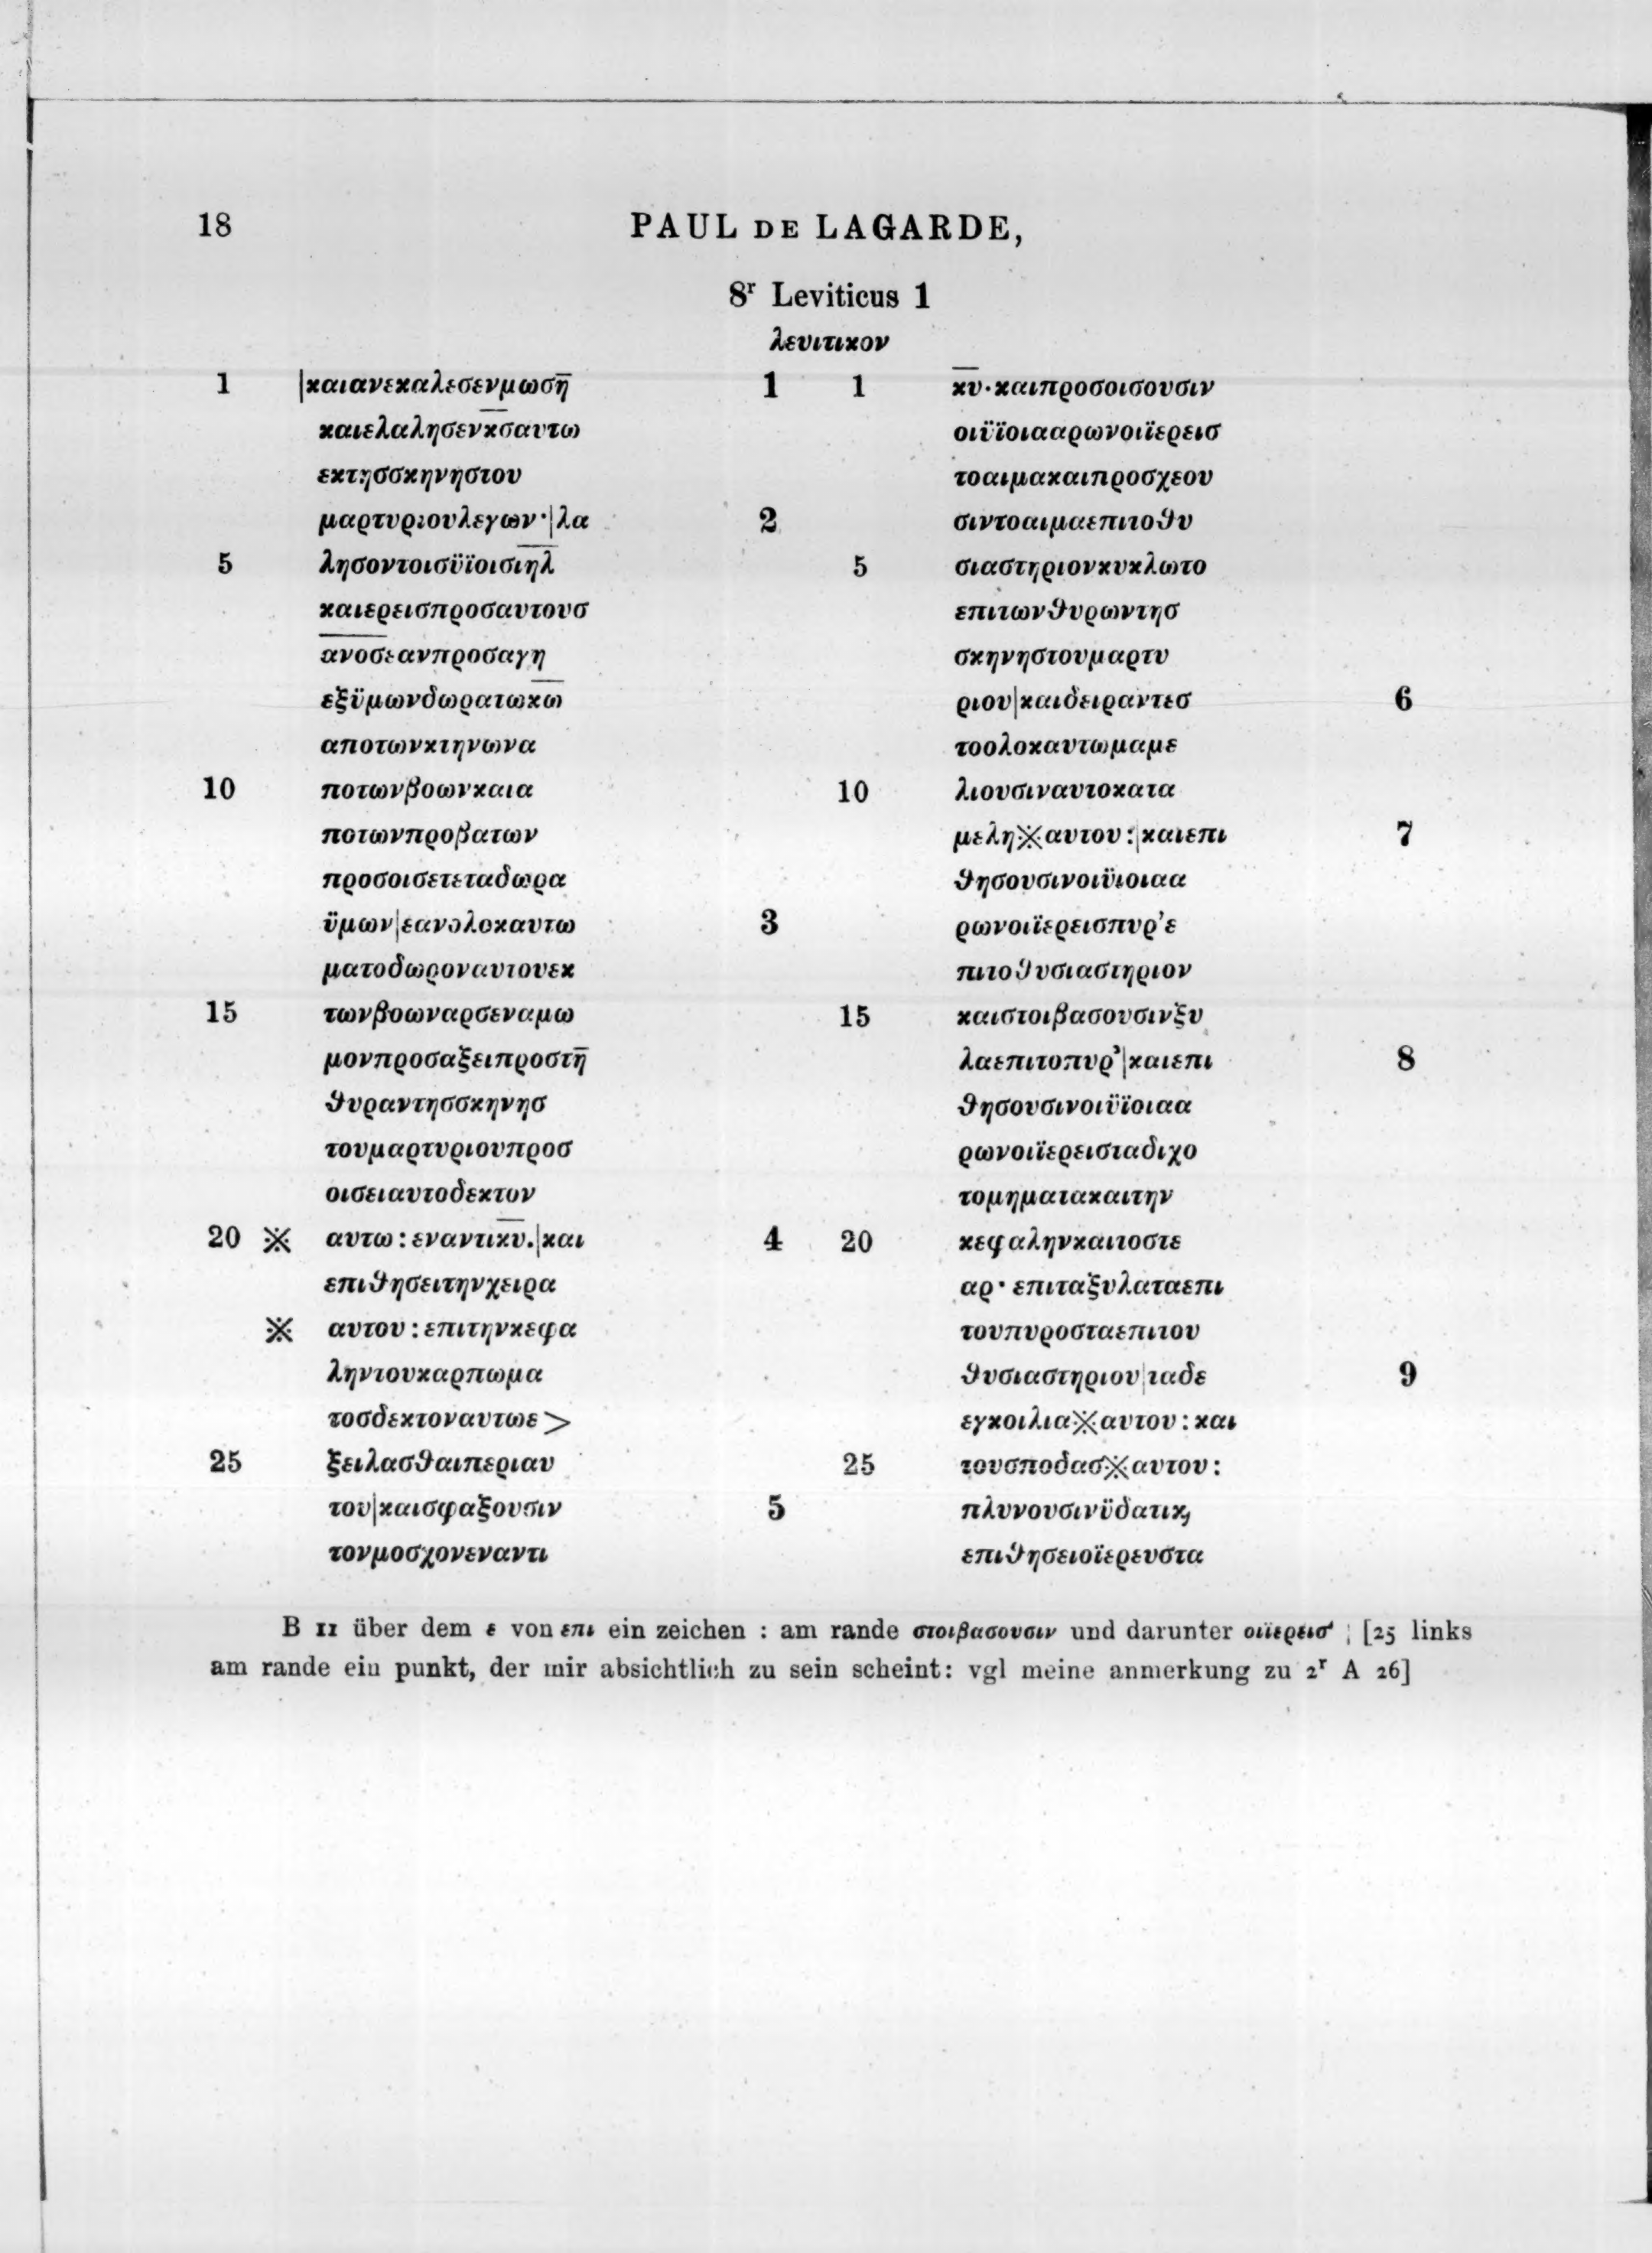 18 PAUL DE LAGARDE,
8ʳ Leviticus 1
λευιτικον
1 |καιανεκαλεσενμωση̅ 1
καιελαλησενκ̅σ̅αυτω
εκτησσκηνηστου
μαρτυριουλεγων·|λα 2
5 λησοντοισϋϊοισι̅η̅λ̅
καιερεισπροσαυτουσ
α̅ν̅ο̅σ̅εανπροσαγη
εξϋμωνδωρατωκ̅ω̅
αποτωνκτηνωνα
10 ποτωνβοωνκαια
ποτωνπροβατων
προσοισετεταδωρα
ϋμων|εανολοκαυτω 3
ματοδωροναυτουεκ
15 τωνβοωναρσεναμω
μονπροσαξειπροστη̅
θυραντησσκηνησ
τουμαρτυριουπροσ
οισειαυτοδεκτον
20 ※ αυτω:εναντικ̅υ̅.|και 4
επιθησειτηνχειρα
※ αυτου:επιτηνκεφα
ληντουκαρπωμα
τοσδεκτοναυτωε>
25 ξειλασθαιπεριαυ
του|καισφαξουσιν 5
τονμοσχονεναντι
1 κ̅υ̅·καιπροσοισουσιν
οιϋϊοιααρωνοιϊερεισ
τοαιμακαιπροσχεου
σιντοαιμαεπιτοθυ
5 σιαστηριονκυκλωτο
επιτωνθυρωντησ
σκηνηστουμαρτυ
ριου|καιδειραντεσ 6
τοολοκαυτωμαμε
10 λιουσιναυτοκατα
μελη※αυτου:|καιεπι 7
θησουσινοιϋιοιαα
ρωνοιϊερεισπυρ’ε
πιτοθυσιαστηριον
15 καιστοιβασουσινξυ
λαεπιτοπυρ’|καιεπι 8
θησουσινοιϋϊοιαα
ρωνοιϊερεισταδιχο
τομηματακαιτην
20 κεφαληνκαιτοστε
αρ· επιταξυλαταεπι
τουπυροσταεπιτου
θυσιαστηριου|ταδε 9
εγκοιλια※αυτου:και
25 τουσποδασ※αυτου:
πλυνουσινϋδατικ,
επιθησειοϊερευστα
B 11 über dem ε von επι ein zeichen : am rande στοιβασουσιν und darunter οιϊερεισ’ ¦ [25 links
am rande ein punkt, der mir absichtlich zu sein scheint: vgl meine anmerkung zu 2ʳ A 26]